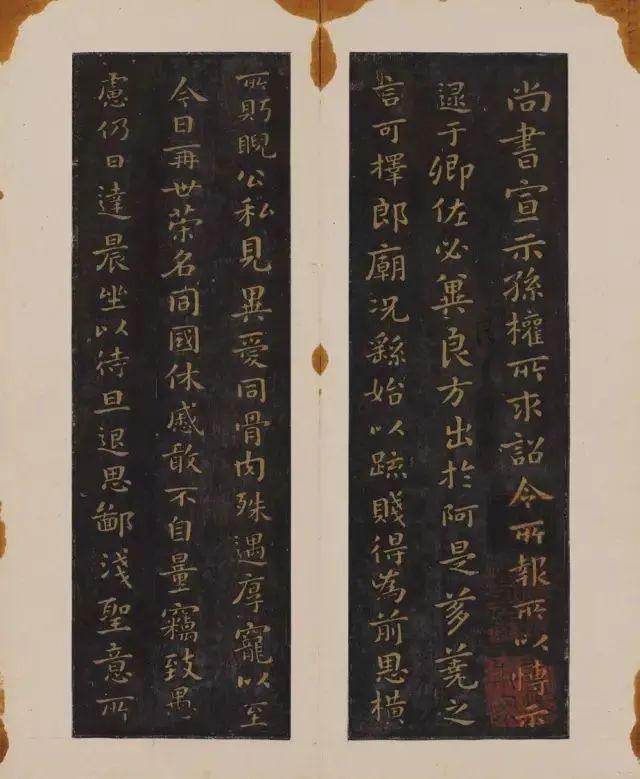 尚書宣示孫權所求詔令所報所以愽示
逮于卿佐必冀良方出於阿是芻蕘之
言可擇郎廟況繇始以踈賤得為前恩橫
所眄睨公私見異愛同骨肉殊遇厚寵以至
今日再世榮名同國休慼敢不自量竊致愚
慮仍日達晨坐以待旦退思鄙淺聖意所